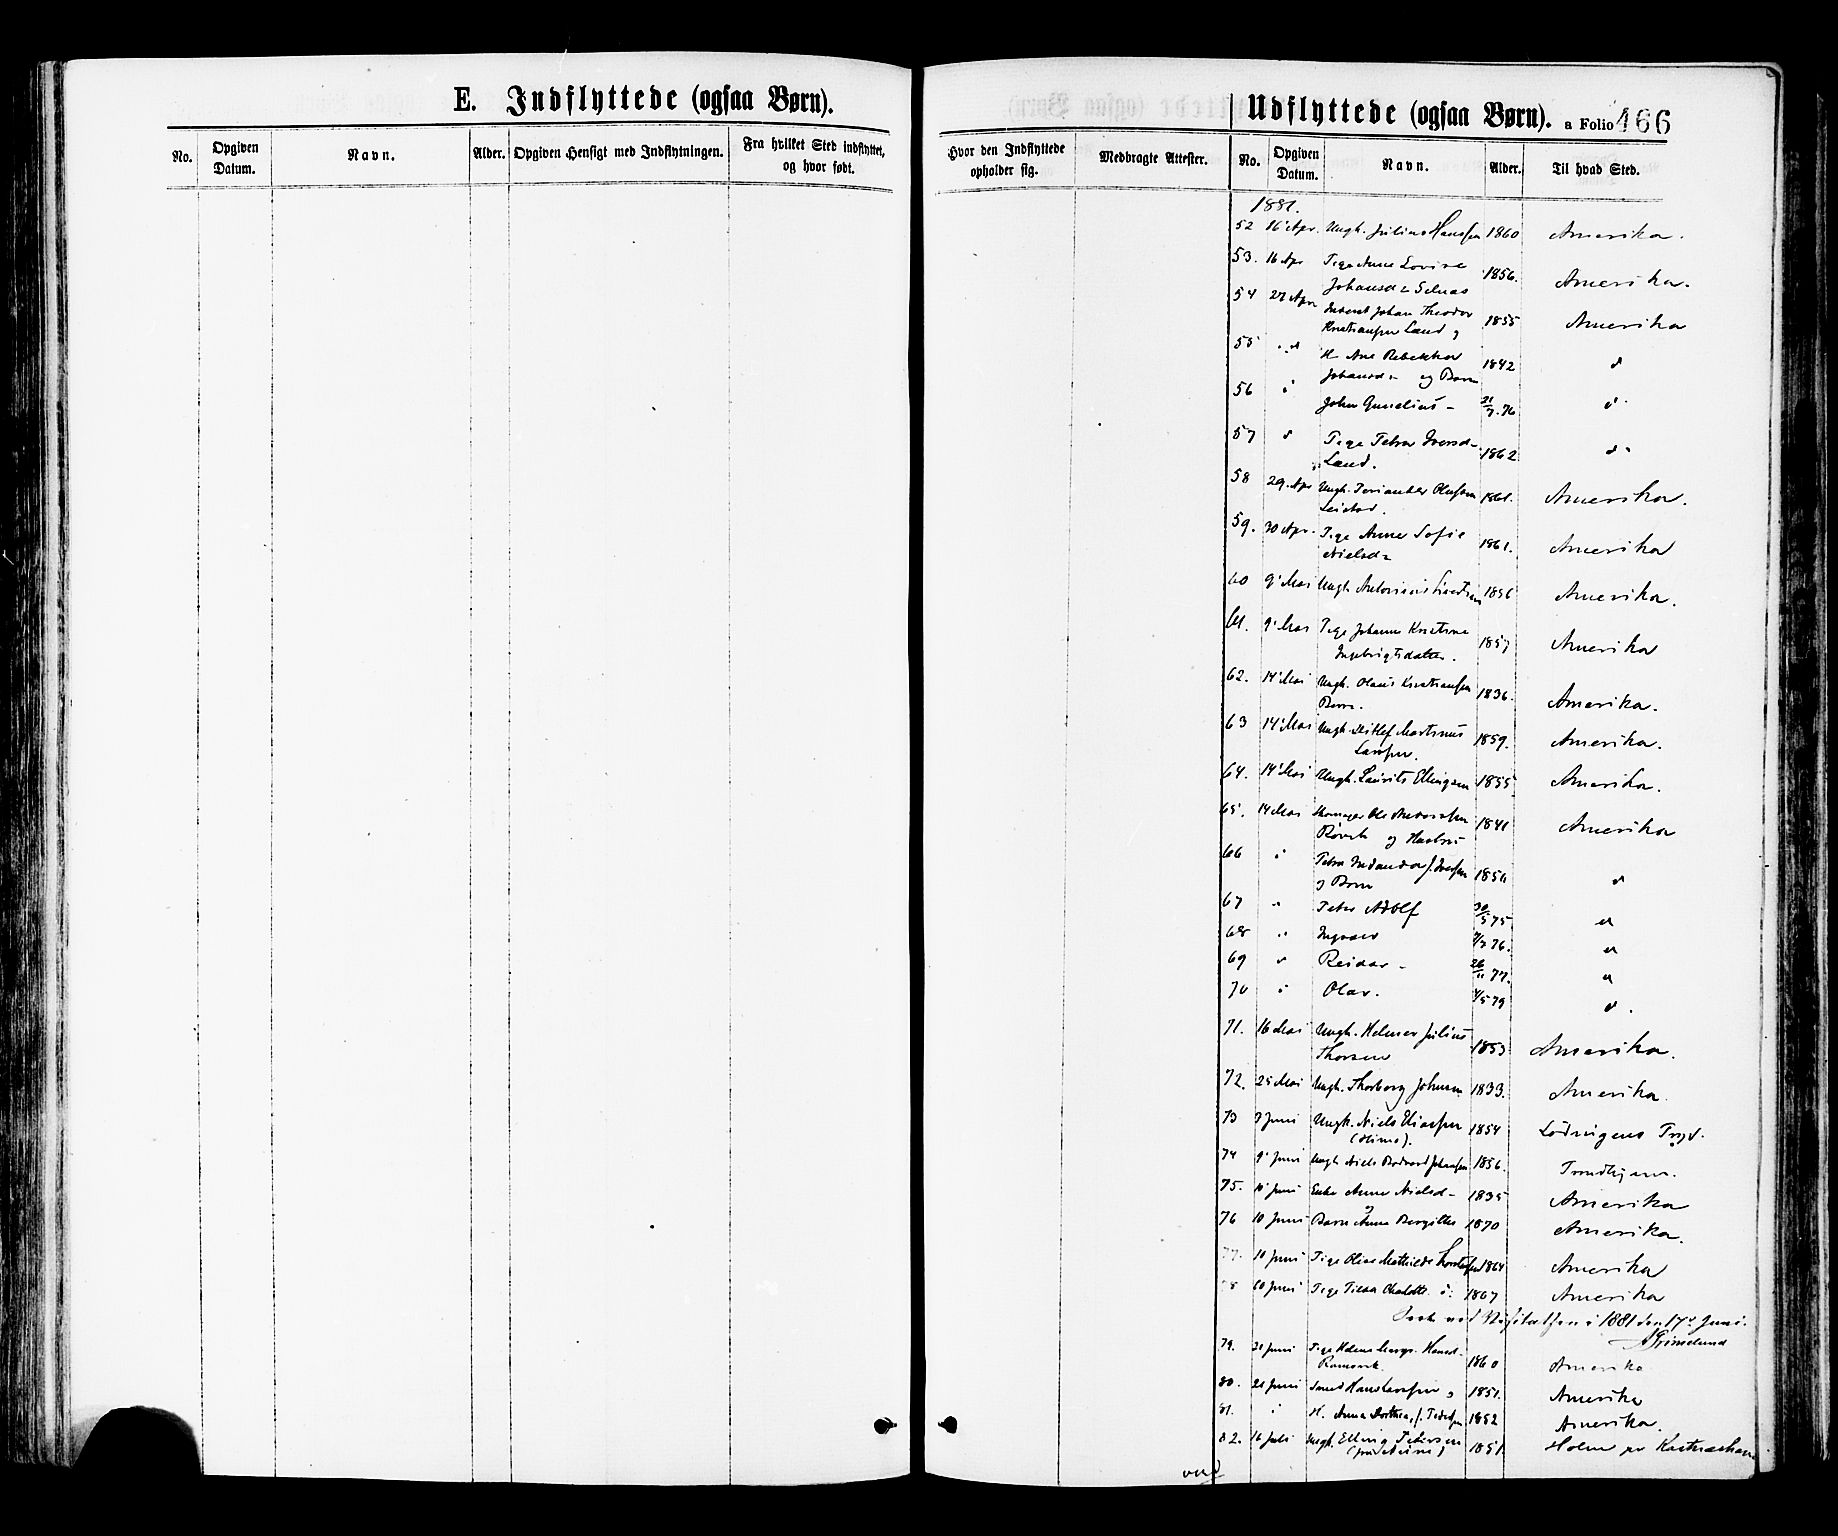 E. Indflyttede (ogsaa Børn).
No. Opgiven Datum. Navn. Alder. Opgiven Hensigt med Indflytningen. Fra hvilket Sted indflyttet, og hvor født.
Hvor den Indflyttede opholder sig. Medbragte Attester.
Udflyttede (ogsaa Børn). a Folio 466
No. Opgiven Datum. Navn. Alder. Til hvad Sted.
1881.
52 16' Apr. Ungk. Julius Hanssen 1860 Amerika.
53. 16 Apr Pige Anne Lovise
Johansd 1856. Amerika.
54 27 Apr Johan Theodor
Kristiansen Land og 1855 Amerika
55 " d H. Ane Rebekka
Johansd - og Barn 1842 d
56 " John Cornelius - 31/7.76 d
57 d Pige Petra Iversd -
Land. 1862 d
58 29. Apr Ungk. Olufsen
1861. Amerika.
59. 30 Apr. Pige Anne Sofie
Nielsd 1861. Amerika
60 9' Mai Ungk Sivertsen 1856 Amerika.
61. 9' Mai Pige Johanna Kristine
Ingebrigtsdatter. 1857 Amerika
62. 14' Mai Ungk. Olaus Kristiansen
1836. Amerika.
63 14' Mai Ungk. Ditlef Martinus
Larssen. 1859. Amerika.
64. 14' Mai Ungk. Laurits Ellingsen 1855 Amerika.
65. 14 Mai Skomager Ole Andreassen
Rörvik og Hustru 1841 Amerika
66 " Petra f. Iversen
og Børn 185 d
67 " Peter Adolf 30/5 75 d
68 " Ingvar 7/7 76. d
69 d Reidar - 26/11 77. d
70 " Olav. 4/5 79 d.
71. 16 Mai Ungk. Helmer Julius
Thorsen 1853 Amerika.
72. 25 Mai Ungk. Thorberg Johnsen 1833. Amerika.
73 3 Juni Ungk. Niels Eliassen
1854 Lödingens Prgd.
74 9' Juni Ungk Niels Johansen 1856. Trondhjem.
75. 10' Juni Enke Anne Nielsd - 1835 Amerika
og
76 10 Juni Barn Anna Bergitte 1870 Amerika.
77. 10 Juni Pige Oline Mathilde 1864 Amerika
78 10 Juni Pige Charlotte d: 1867 Amerika
ved Visitatsen i 1881 den 17de Juni.
Grimelund
79. 21 Juni Pige Helene Hansd.
1860 Amerika
80. 21 Juni Hans Larssen og 1851. Amerika
81. " H. Anna Dorthea, f. Peders 1852 Amerika.
82. 16 Juli Ungk. Elling Petersen
1851 Holm pr Kristianshavn
vend